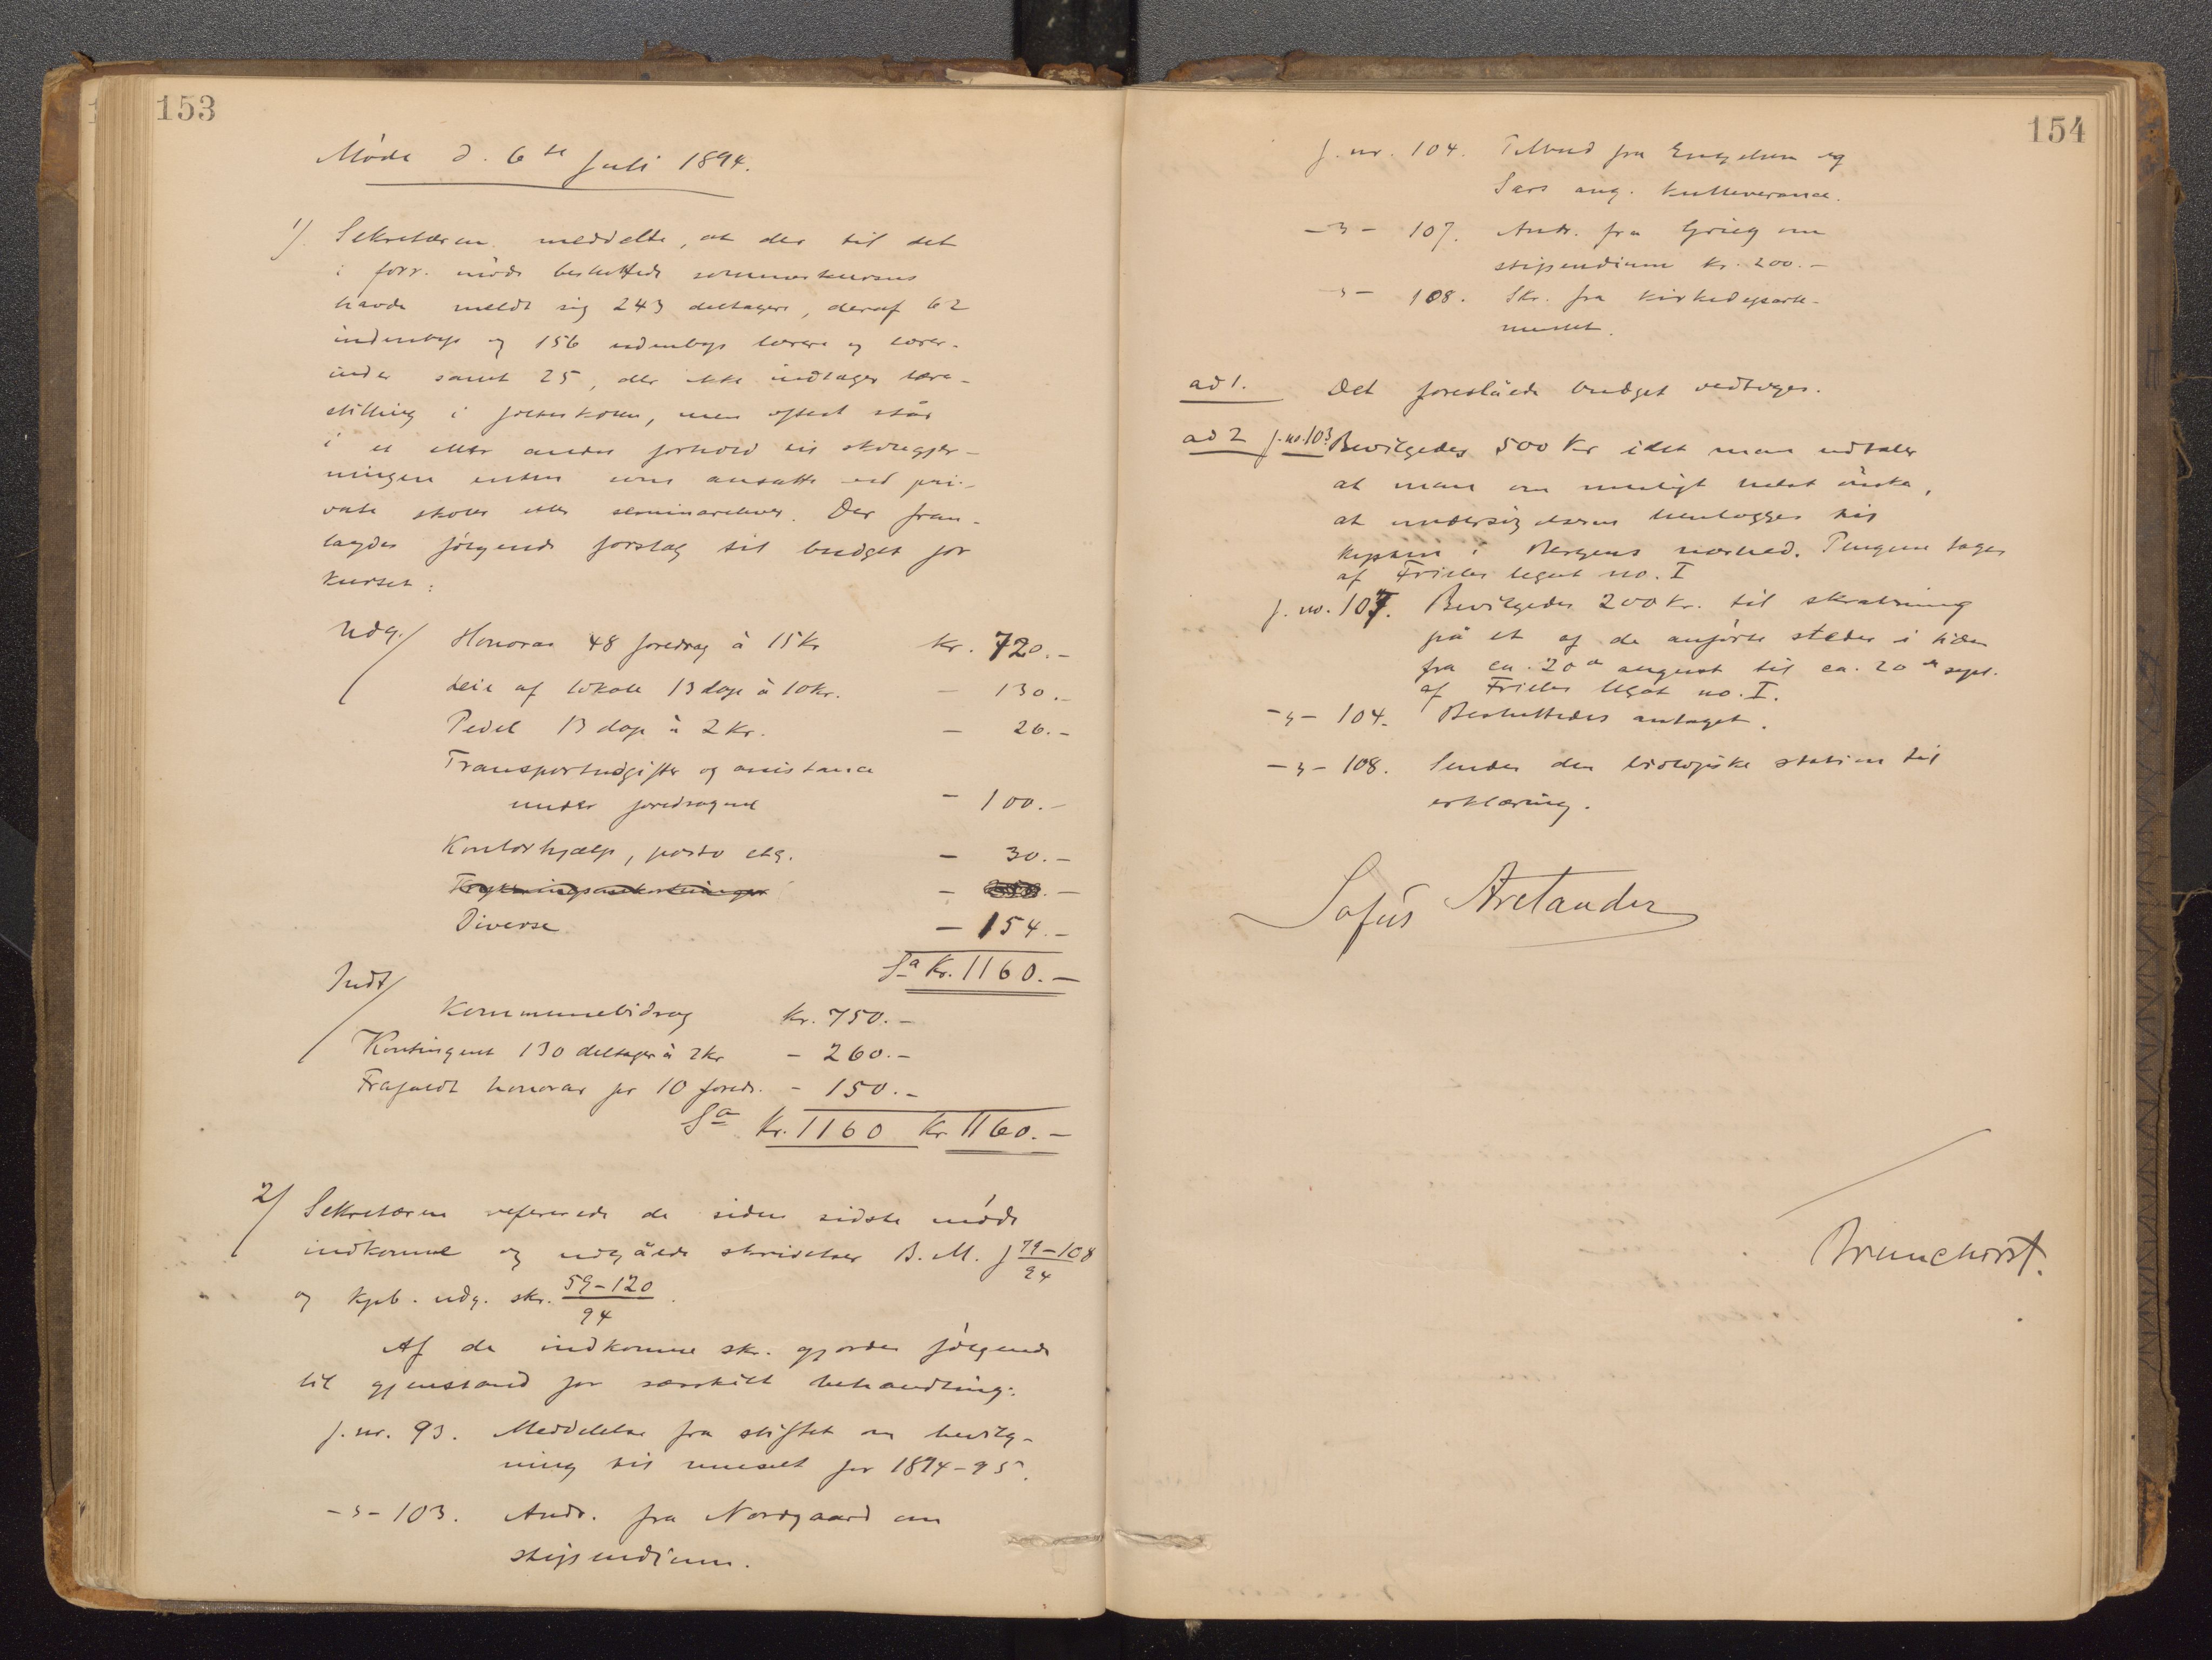 153
Møde d. 6te Juli 1894.
1) Sekretæren meddelte, at der til det
i forr. møde besluttede sommerkursus
havde meldt sig 243 deltagere, deraf 62
indenbys og 156 udenbys lærere og lærer-
inder samt 25, der ikke indtager lære-
stilling i folkeskolen, men oftest står
i et eller andet forhold til skolegjer-
ningen enten som ansatte ved pri-
vate skoler eller seminarelever. Der frem-
lagdes følgende forslag til budget for
kurset:
Udg. Honorar 48 foredrag à 15 kr kr. 720.-
Leie af lokale 13 dage à 10 kr. - 130.-
Pedel 13 dage à 2 kr. - 26.-
Transportudgifter og assistance
under foredragene - 100.-
Kontorhjælp, porto etc. - 30.-
Diverse - 154.-
Sa Kr. 1160.-
Indt
Kommunebidrag kr. 750.-
Kontingent 130 deltager à 2 kr - 260.-
Frafaldt honorar for 10 foredr. - 150.-
Sa Kr. 1160 Kr. 1160.-
2) Sekretæren refererede de siden sidste møde
indkomne og udgåede skrivelser B. M. J 79-108/94
og kpb. udg. skr. 59-120/94.
Af de indkomne skr. gjordes følgende
til gjenstand for særskilt behandling:
J. nr. 93. Meddelelse fra stiftet om bevilg-
ning til museet for 1894-95.
-"- 103. Andr. fra Nordgaard om
stipendium.
154
J. nr. 104. Tilbud fra Engelsen og
Sars ang. kulleverance.
-"- 107. Andr. fra Grieg om
stipendium kr. 200.-
-"- 108. Skr. fra kirkedeparte-
mentet.
ad 1. Det foreslåede budget vedtoges.
ad 2 J. no. 103 Bevilgedes 500 kr idet man udtaler
at man om muligt helst ønsker,
at undersøgelserne henlægges til
kysten i Bergens nærhed. Pengene tages
af Frieles legat no. I
J. no. 107. Bevilgedes 200 kr. til skrabning
på et af de anførte steder i tiden
fra ca. 20de august til ca. 20de sept.
af Frieles legat no. I.
-"- 104. Besluttedes antaget.
-"- 108. Sendes den biologiske station til
erklæring.
Sofus Arctander
Brunchorst.